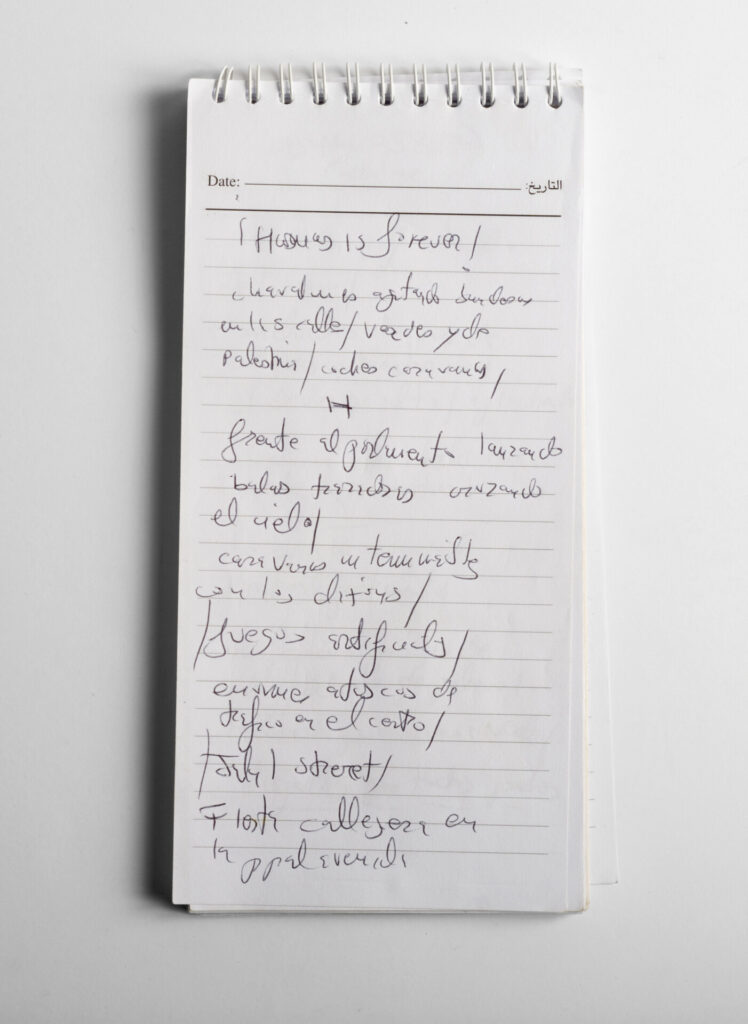 Date: التاريخ:
/Hamas is forever/
chavalines agitando banderas
en las calle/verdes y de
Palestina/coches caravanas/
H
frente al parlamento lanzando
balas trazadoras cruzando
el cielo/
caravanas interminable
con los
/fuegos artificiales/
enormes atascos de
trafico en el centro/
/Jala'l street/
Fiesta callejera en
la ppal avenida